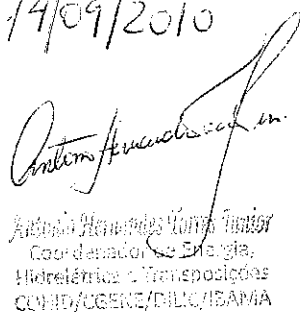 14/09/2010
Antônio Hernandes Torres Junior
Coordenador de Energia,
Hidrelétrica e Transposições
COHID/CGENE/DILIC/IBAMA